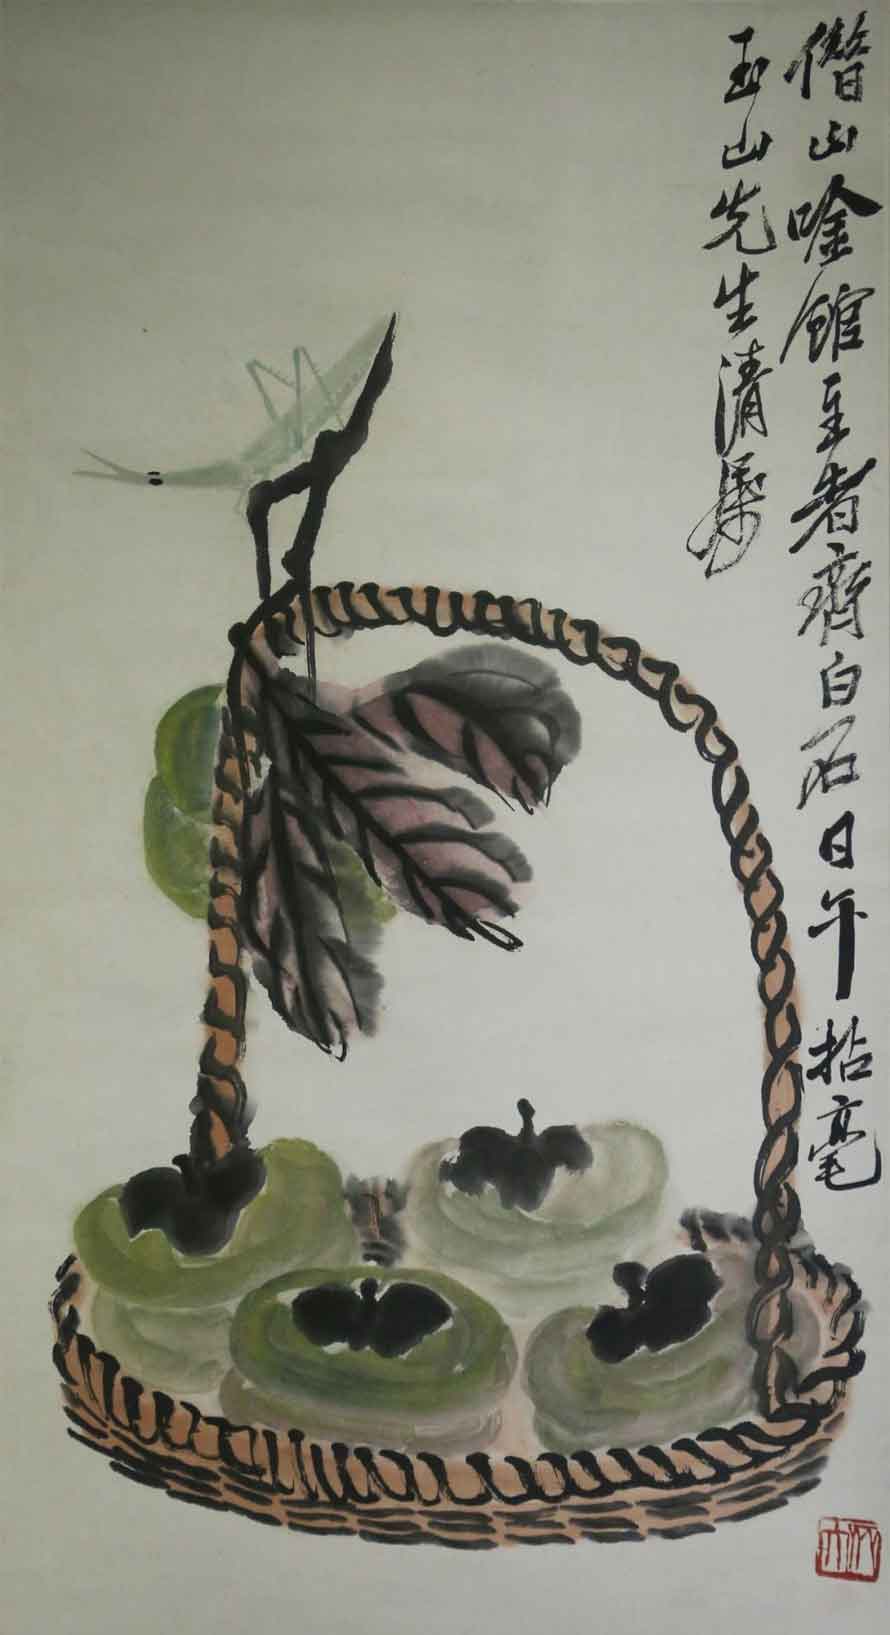 借山唫館主者齊白石日午拈毫
玉山先生清屬